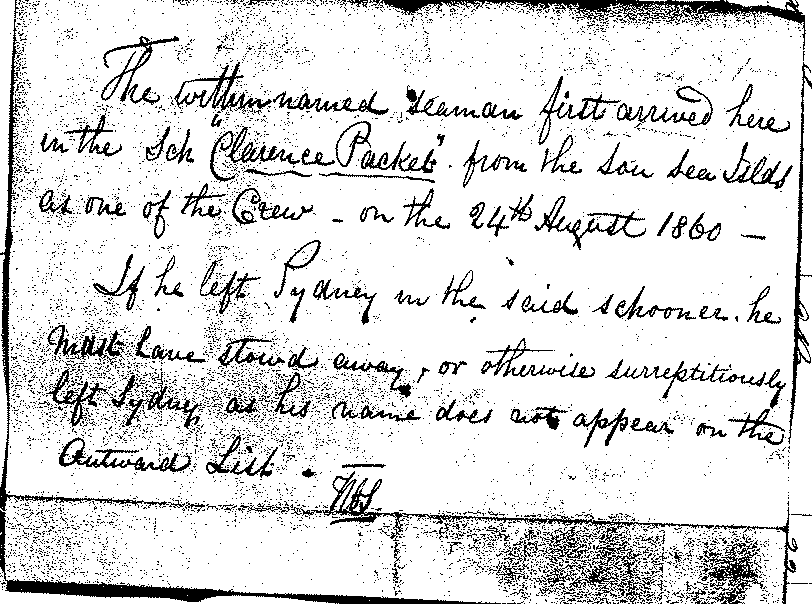 The within named seaman first arrived here
in the Sch "Clarence Packet" from the Sou Sea Islds
as one of the Crew - on the 24th August 1860 -
If he left Sydney in the said schooner. he
must have stowd away, or otherwise surreptitiously
left Sydney as his name does not appear on the
Outward List.